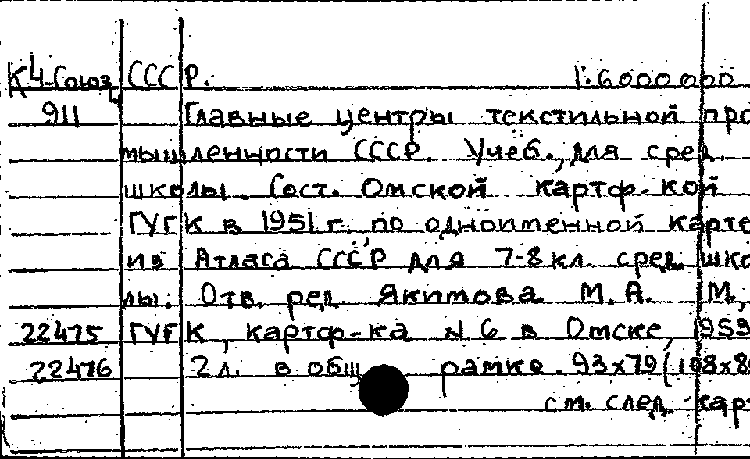 К4-Союз СССР. 1:6000000
4
911 Главные центры текстильной про
мышленности СССР. Учеб., для сред.
школы. Сост. Омской картф-кой
ГУГК в 1951 г. по одноименной карте
из Атласа СССР для 7-8 кл. сред. шко
лы. Отв. ред. Якимова М.А. М.,
22475 ГУГК, картф-ка N 6 в Омске, 1953
22476 2 л. в общ рамке. 93х79(108х8
см. след. карт